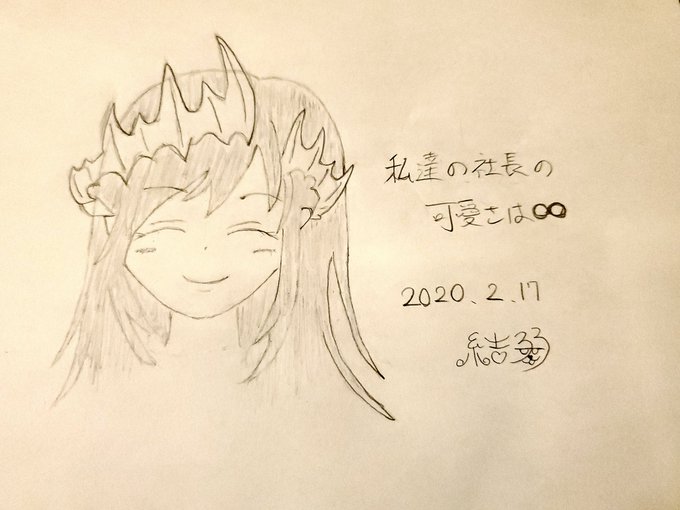 私達の社長の
可愛さは∞
2020.2.17
結